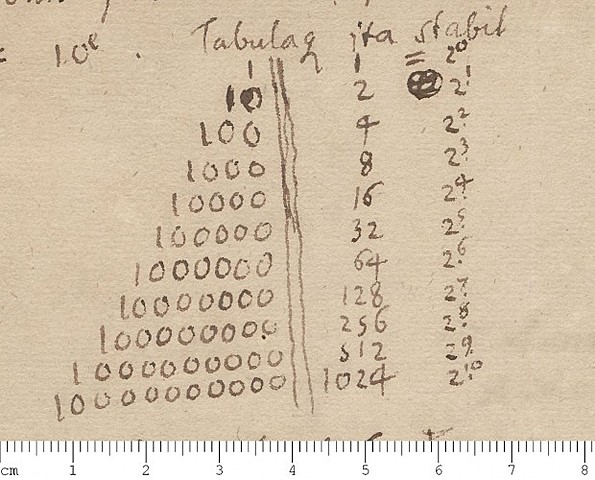 10e. Tabulaq ita stabit
1 1 = 2⁰
10 2 2¹
100 4 2²
1000 8 2³
10000 16 2⁴
100000 32 2⁵
1000000 64 2⁶
10000000 128 2⁷
100000000 256 2⁸
1000000000 512 2⁹
10000000000 1024 2¹⁰
cm 1 2 3 4 5 6 7 8